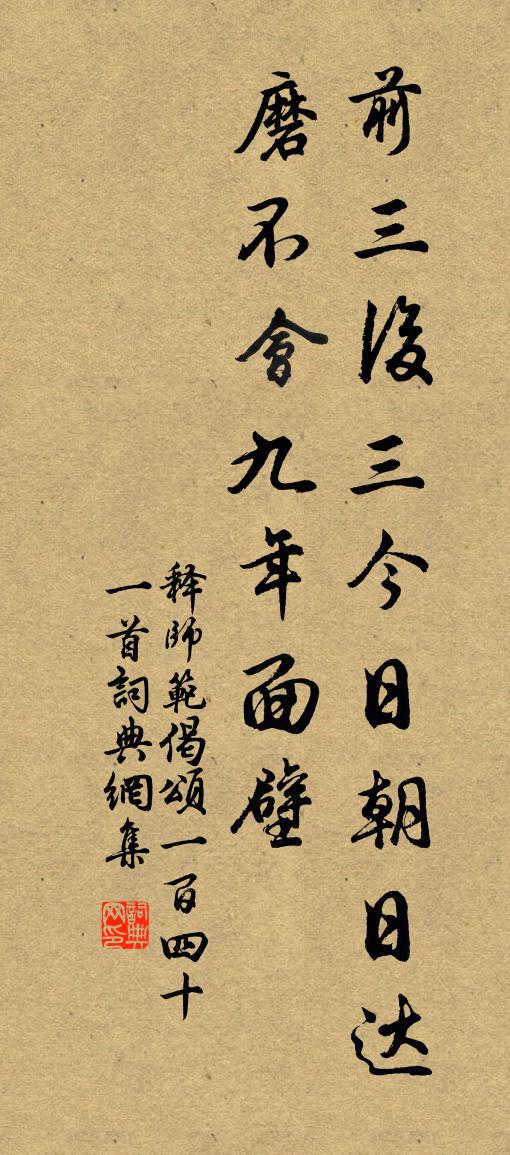 前三後三今日朝日达
磨不會九年面壁
释師範偈頌一百四十
一首詞典網集
詞典网印